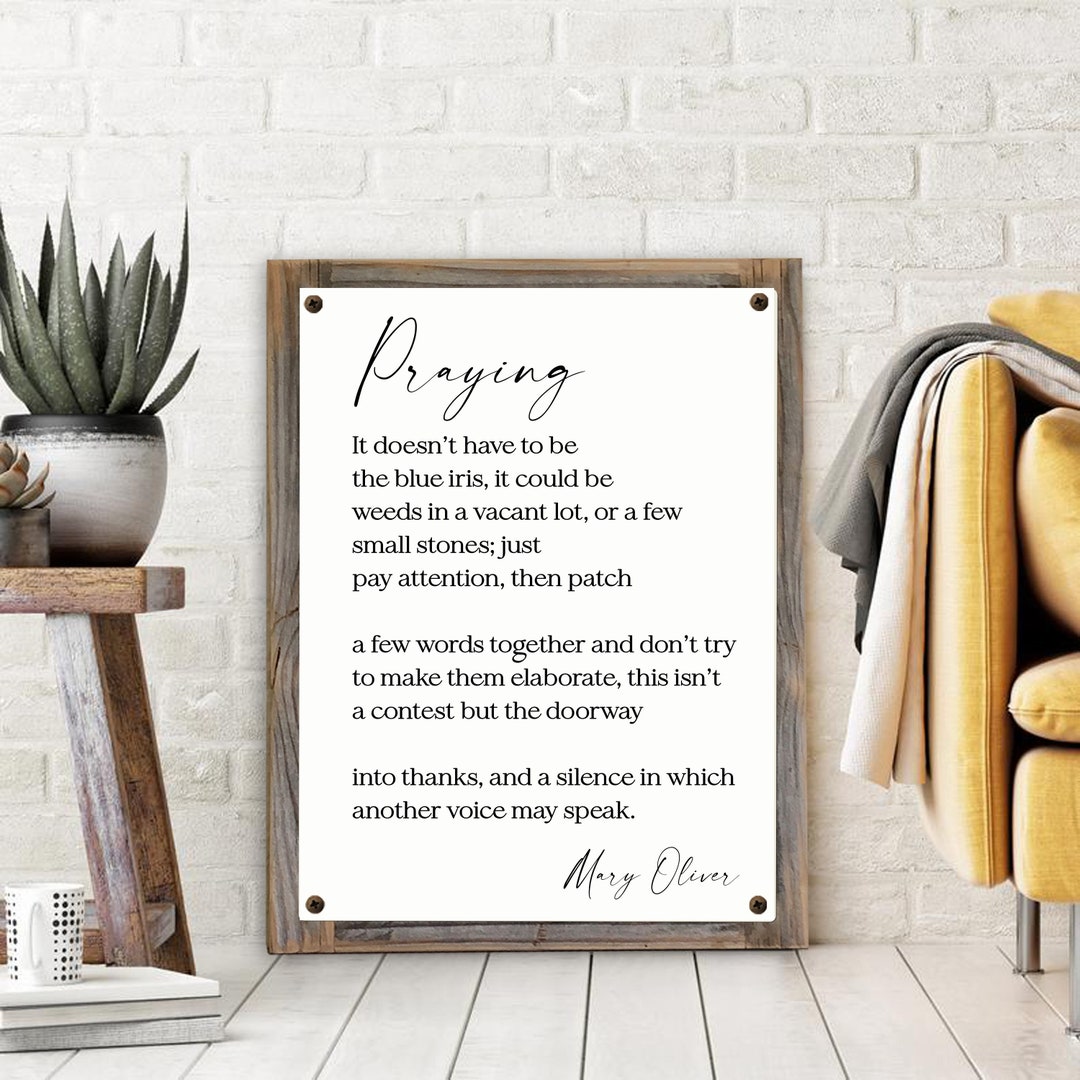 Praying
It doesn’t have to be
the blue iris, it could be
weeds in a vacant lot, or a few
small stones; just
pay attention, then patch
a few words together and don’t try
to make them elaborate, this isn’t
a contest but the doorway
into thanks, and a silence in which
another voice may speak.
Mary Oliver